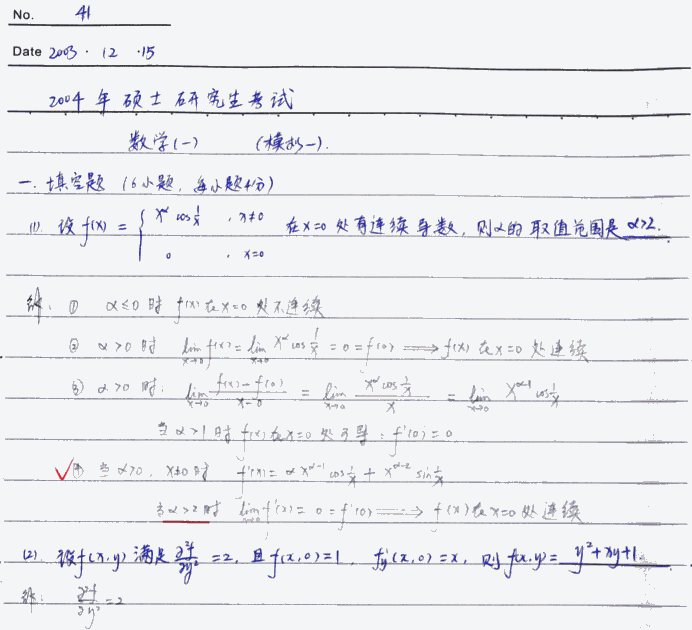 No. 41
Date 2003 · 12 · 15
2004 年 硕士 研究生考试
数学(一) (模拟一).
一. 填空题 (6小题, 每小题4分)
(1) 设 f(x) = { x^α cos 1/x , x≠0 在 x=0 处有连续导数, 则α的取值范围是 α>2.
0 , x=0
解: ① α≤0 时 f(x) 在 x=0 处不连续
② α>0 时 lim x→0 f(x) = lim x→0 x^α cos 1/x = 0 = f(0) ⟹ f(x) 在 x=0 处连续
③ α>0 时: lim x→0 (f(x)-f(0))/(x-0) = lim x→0 (x^α cos 1/x)/x = lim x→0 x^(α-1) cos 1/x
当 α>1 时 f(x) 在 x=0 处可导: f'(0)=0
✓④ 当 α>0, x≠0 时 f'(x) = αx^(α-1) cos 1/x + x^(α-2) sin 1/x
当 α>2 时 lim x→0 f'(x) = 0 = f'(0) ⟹ f'(x) 在 x=0 处连续
(2) 设 f(x,y) 满足 ∂²f/∂y² = 2, 且 f(x,0)=1, f'y(x,0)=x, 则 f(x,y)= y²+xy+1.
解: ∂²f/∂y² = 2